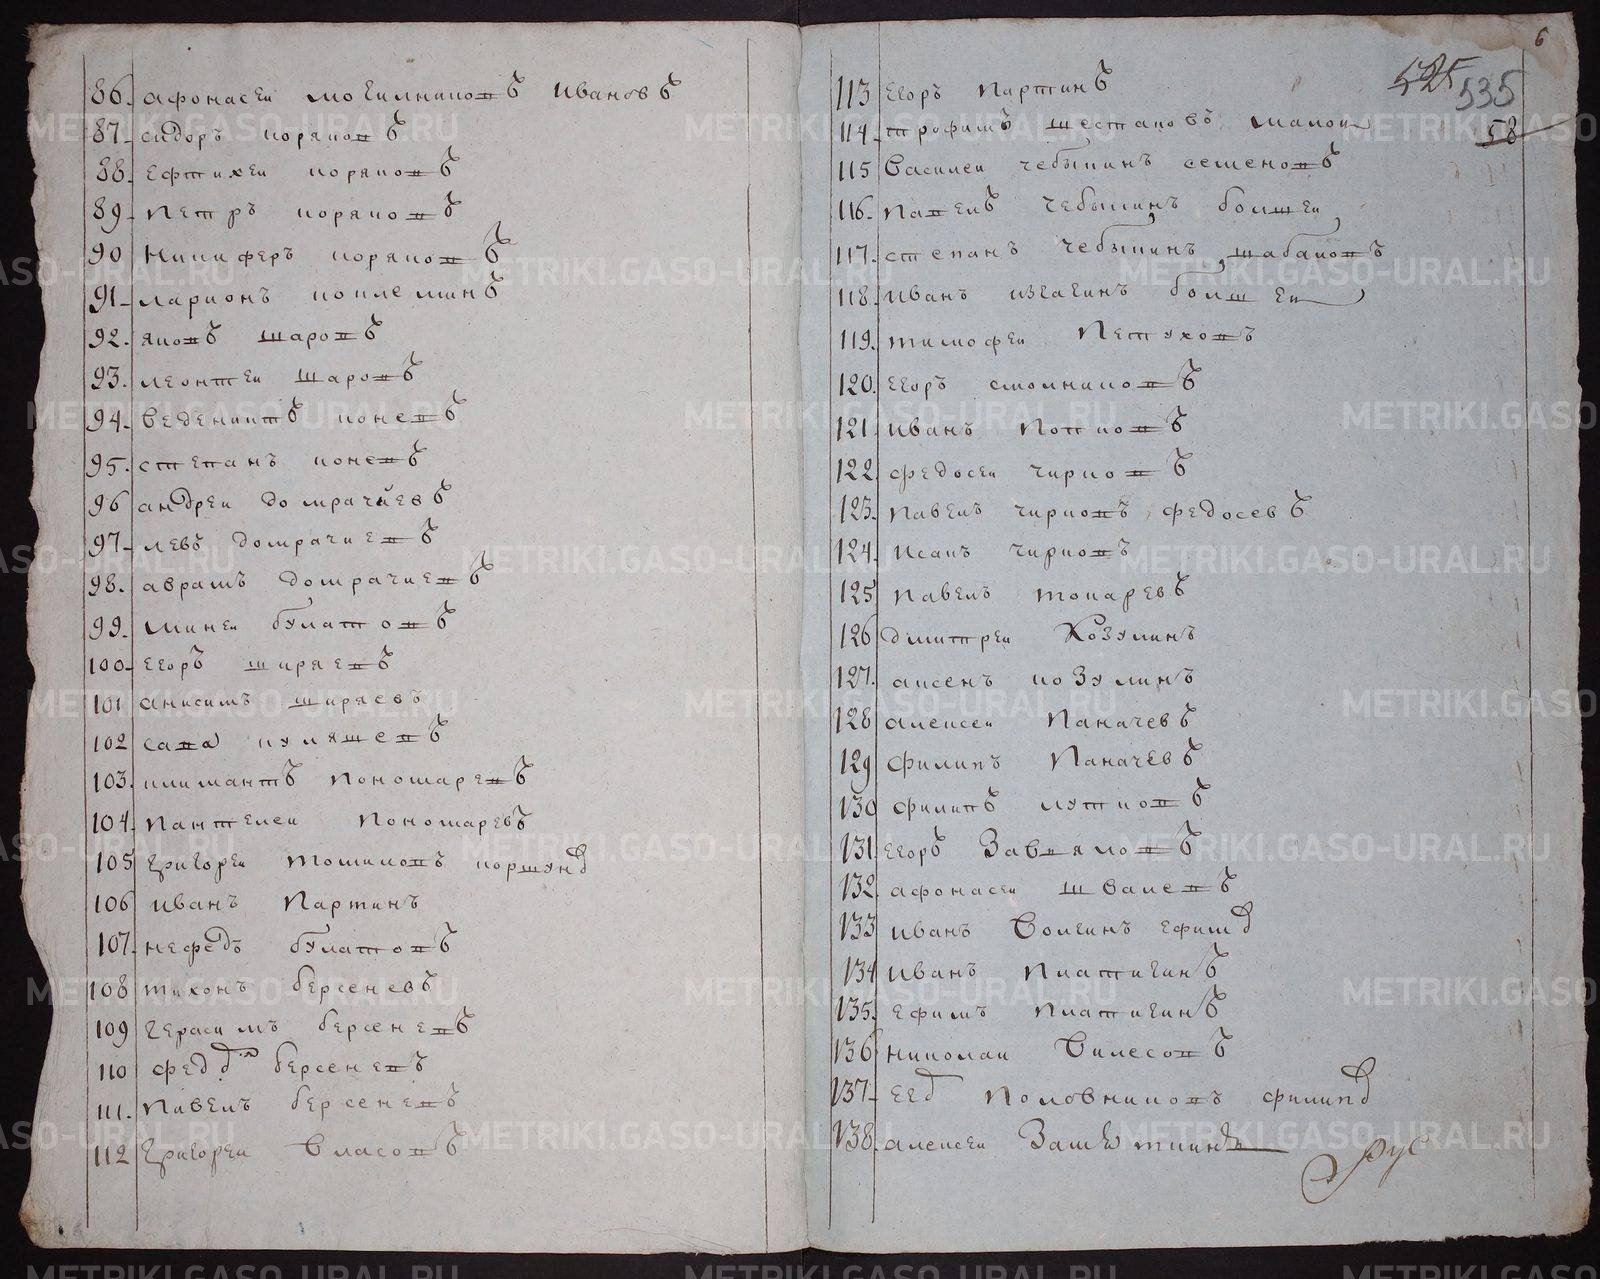 86. афонасеи могилниковъ ивановъ
87. сидоръ коряковъ
88. ефтихеи коряковъ
89. петръ коряковъ
90 никиферъ коряковъ
91. ларионъ коплеминъ
92. яковъ шаровъ
93. леонтеи шаровъ
94. веденихтъ коневъ
95. степанъ коневъ
96 андреи домрачйевъ
97. левъ домрачиевъ
98. аврамъ домрачиевъ
99. минеи булатовъ
100. егоръ ширяевъ
101 анисимъ ширяевъ
102 сава куляшевъ
103. климантъ пономаревъ
104. пантелеи пономаревъ
105 григореи томиловъ коршунъ
106 иванъ партинъ
107. нефедъ булатовъ
108 тихонъ берсеневъ
109 герасимъ берсеневъ
110 берсеневъ
111. павелъ берсеневъ
112 григореи власовъ
6
525 535
58
113 егоръ партинъ
114. трофимъ шестаковъ малои
115 василеи чебыкинъ семеновъ
116. павелъ чебыкинъ болшеи
117. степанъ чебыкинъ шабаковъ
118. иванъ изгагинъ болшеи
119. тимофеи петуховъ
120. егоръ смолниковъ
121 иванъ коптиовъ
122 федосеи чирковъ
123. павелъ чирковъ федосевъ
124. исакъ чирковъ
125 павелъ токаревъ
126 дмитреи козулинъ
127. аксенъ козулинъ
128 алексеи паначевъ
129 филипъ паначевъ
130 филипъ лутковъ
131. егоръ завяловъ
132. афонасеи швалевъ
133 иванъ волгинъ
134 иванъ платигинъ
135. ефимъ платигинъ
136 николаи вилесовъ
137. половниковъ
138. алексеи